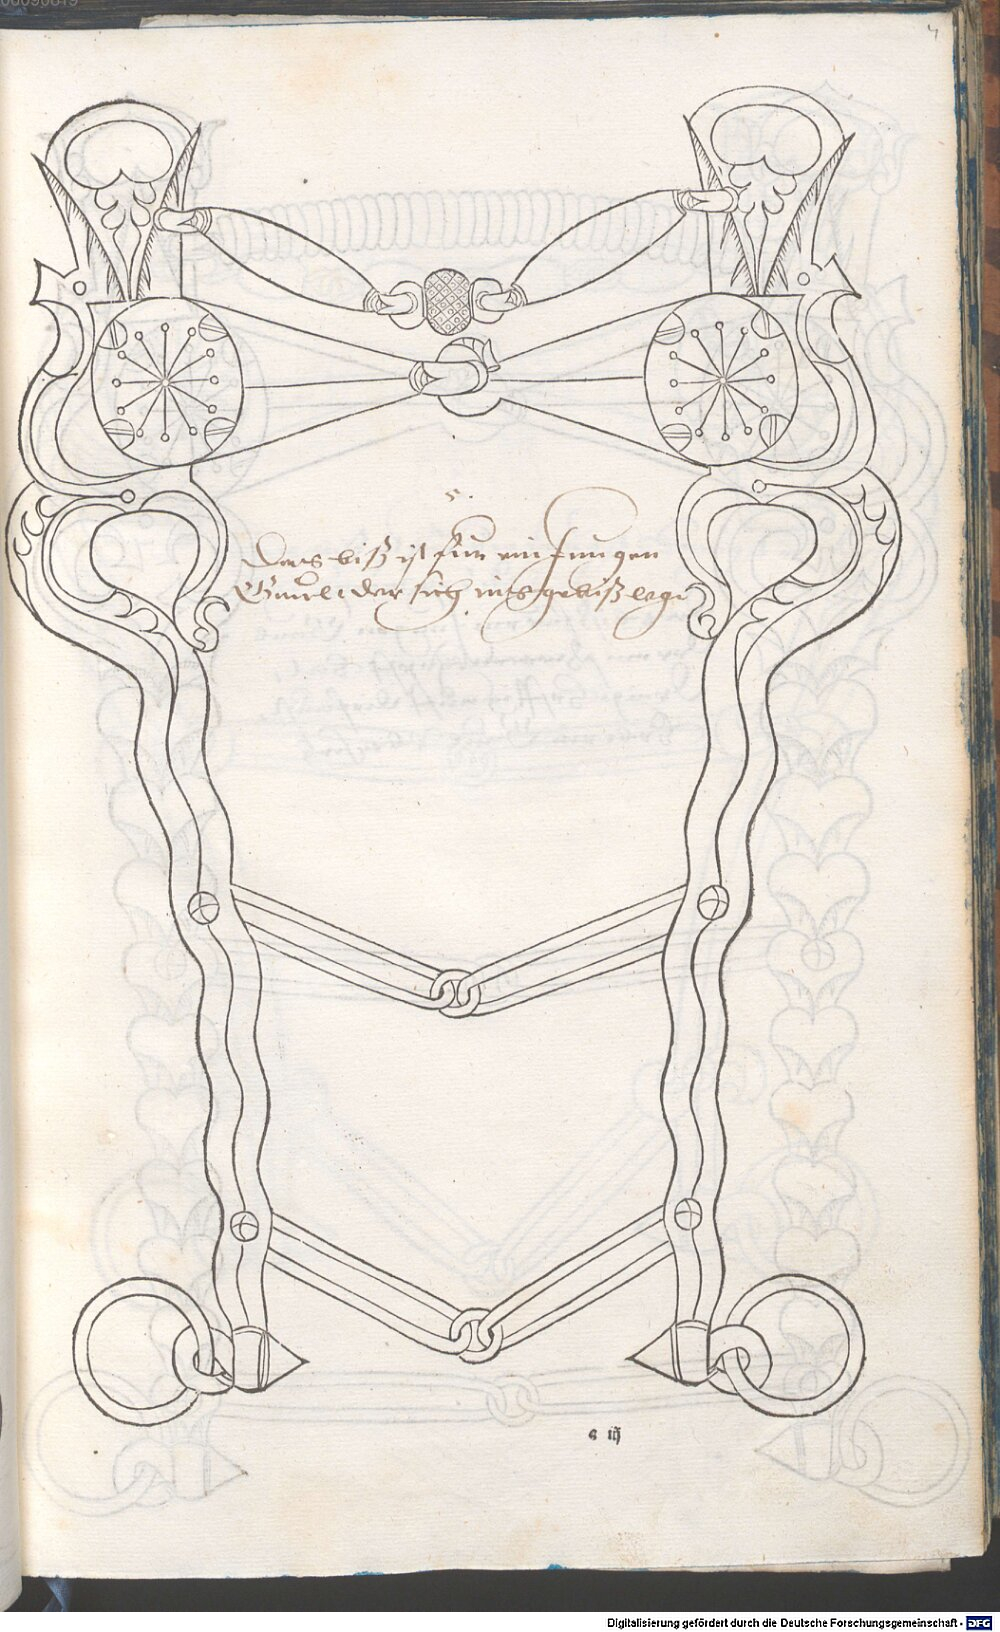 00090819
5.
Das biß ist fur ein Jungen
Gaul der sich ins gebiß legt
a iij
Digitalisierung gefördert durch die Deutsche Forschungsgemeinschaft - DFG